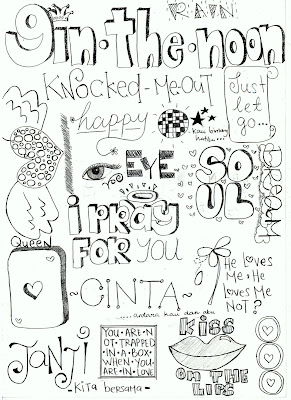 RAIN
9in·the·noon
KNOCKED-MEOUT
Just
let
go...
happy
kau bintang
hatiku...
EYE
SO
UL
DREAM
i PRAY
FOR YOU
Queen
~CINTA~
.....antara kau dan aku
He Loves
Me, He
Loves Me
NOT?
JANJI
- Kita bersama -
YOU·ARE·N
OT·TRAPPED
IN·A·BOX
WHEN·YOU
ARE·IN·LOVE
KISS
ON THE
LIPS